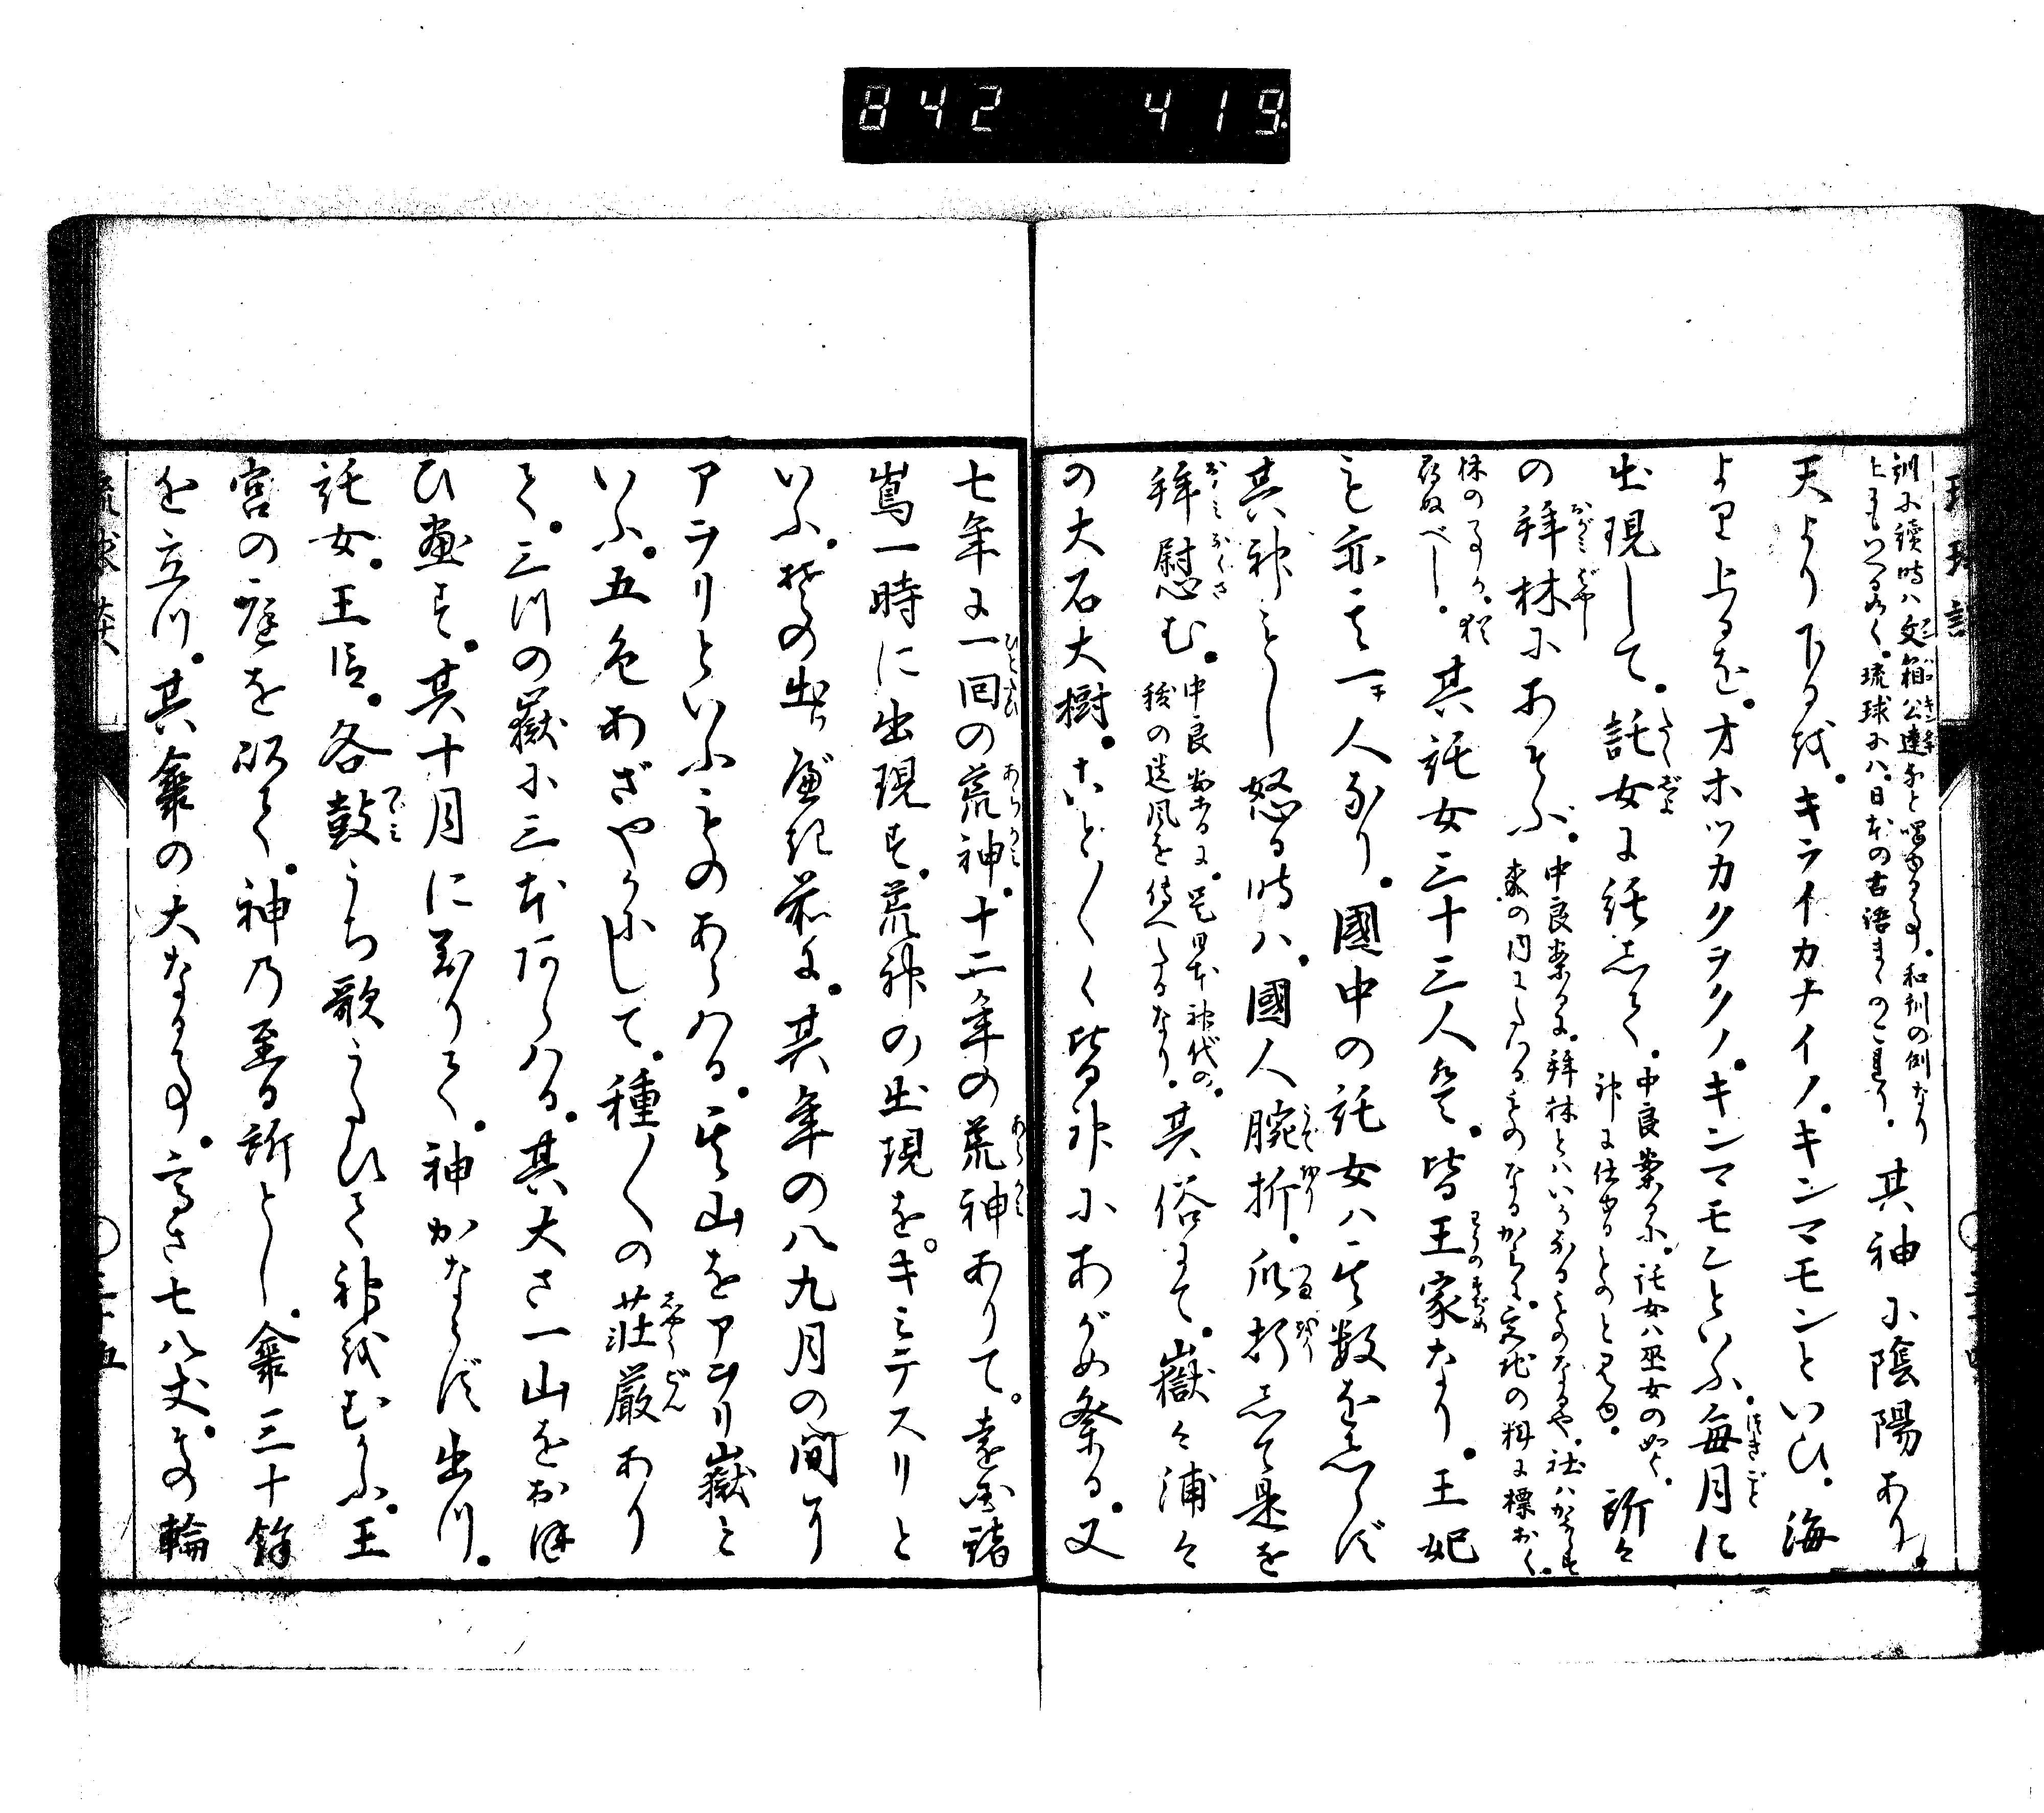 842 419
訓に讀時ハ文箱公達などと唱ゆる事。和訓の例なり
上にもいへる如く。琉球にハ。日本の古語まゝのこれり。
其神に陰陽あり。
天より下るを。キライカナイノ。キンマモンといひ。海
より上るを。オホツカクラクノ。キンマモンといふ。毎月に
出現して。託女に託して。
中良案るに。託女ハ巫女の如く。
神に仕ゆるものと見ゆ。
所々
の拜林にあそぶ。
中良案るに。拜林とハいかなるものなるや。社ハかならず
森の内にたつるものなるからに。宮地の料に標おく。
林の事か。猶
尋ぬべし。
其託女三十三人是。皆王家なり。王妃
も亦其一人なり。國中の託女ハ其数をしらず
其神もし怒る時ハ。國人腕折。爪折して是を
拜慰む。
中良案るに。是日本神代の。
祓の遺風を傳へたるなり。
其俗にて。嶽々浦々
の大石大樹。ことごとく皆神にあがめ祭る。又
七年に一回の荒神。十二年の荒神ありて。遠國諸
嶌一時に出現す。荒神の出現を。キミテスリと
いふ。其の出べき前に。其年の八九月の間より
アヲリといふものあらハる。其山をアヲリ嶽と
いふ。五色あざやかにして。種々の荘厳あり
て。三ツの嶽に三本あらハる。其大さ一山をおほ
ひ盡す。其十月に到りて。神かならず出ツ。
託女。王臣。各鼓うち歌うたひて神をむかふ。王
宮の庭を以て。神乃至る所とし。傘三十餘
を立ツ。其傘の大なる事。高さ七八丈。その輪